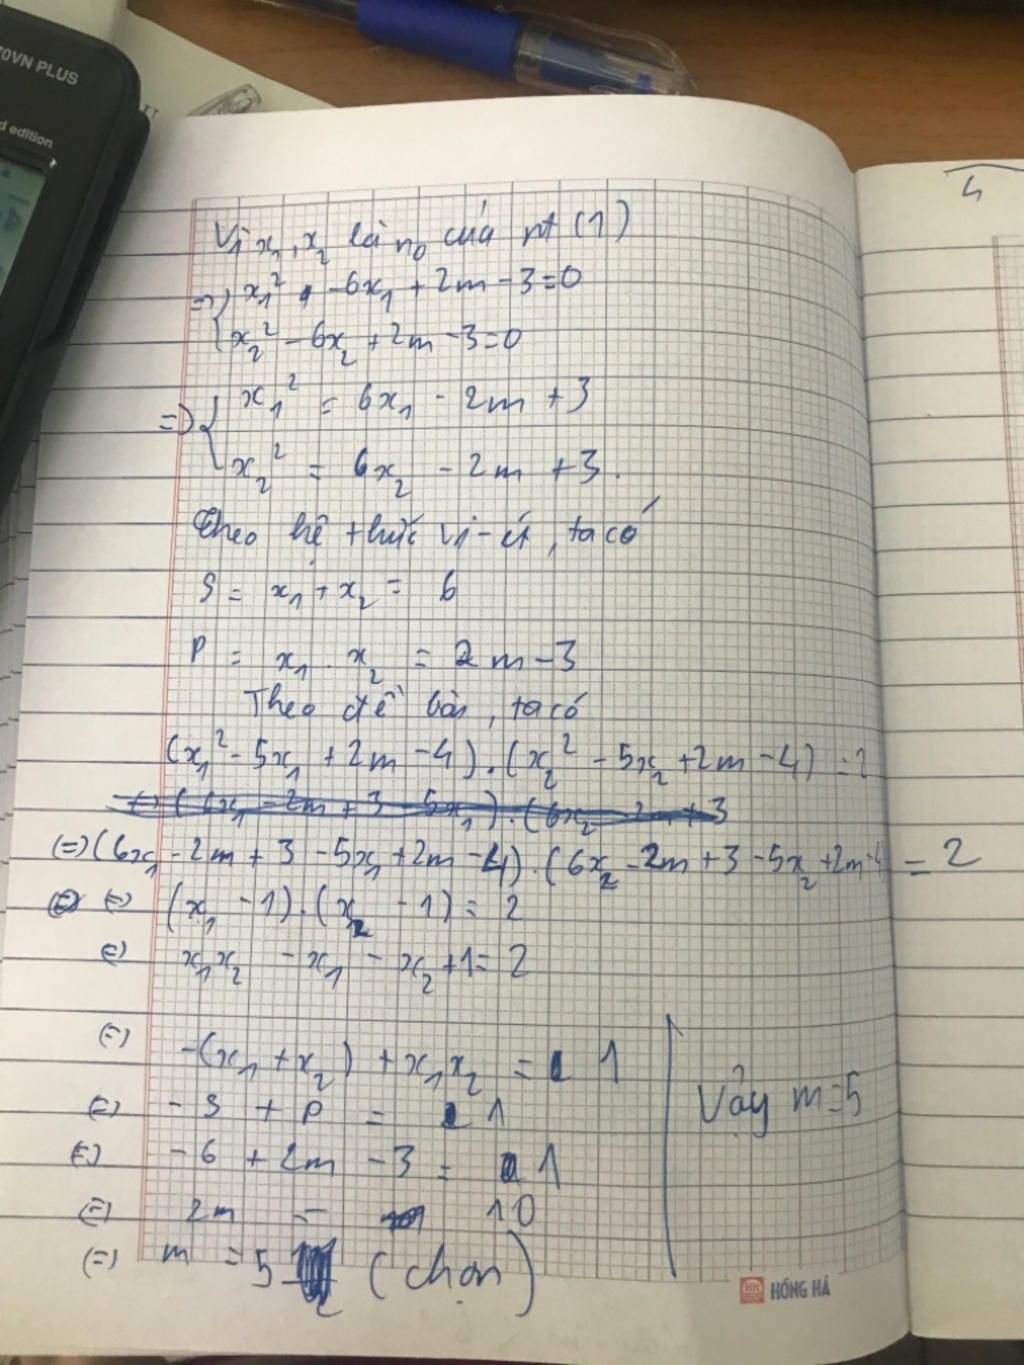 70VN PLUS
d edition
4
Vì x₁, x₂ là n₀ của pt (1)
=> { x₁² - 6x₁ + 2m - 3 = 0
x₂² - 6x₂ + 2m - 3 = 0
=> { x₁² = 6x₁ - 2m + 3
x₂² = 6x₂ - 2m + 3.
Theo hệ thức Vi-ét, ta có
S = x₁ + x₂ = 6
P = x₁ . x₂ = 2m - 3
Theo đề bài, ta có
(x₁² - 5x₁ + 2m - 4) . (x₂² - 5x₂ + 2m - 4) = 2
(=) (6x₁ - 2m + 3 - 5x₁) . (6x₂ - 2m + 3
(=) (6x₁ - 2m + 3 - 5x₁ + 2m - 4) . (6x₂ - 2m + 3 - 5x₂ + 2m - 4) = 2
(=) (x₁ - 1) . (x₂ - 1) = 2
(=) x₁x₂ - x₁ - x₂ + 1 = 2
(=) -(x₁ + x₂) + x₁x₂ = 1
(=) - S + P = 1
(=) - 6 + 2m - 3 = 1
(=) 2m = 10
(=) m = 5 (chọn)
Vậy m = 5
HH HỒNG HÀ